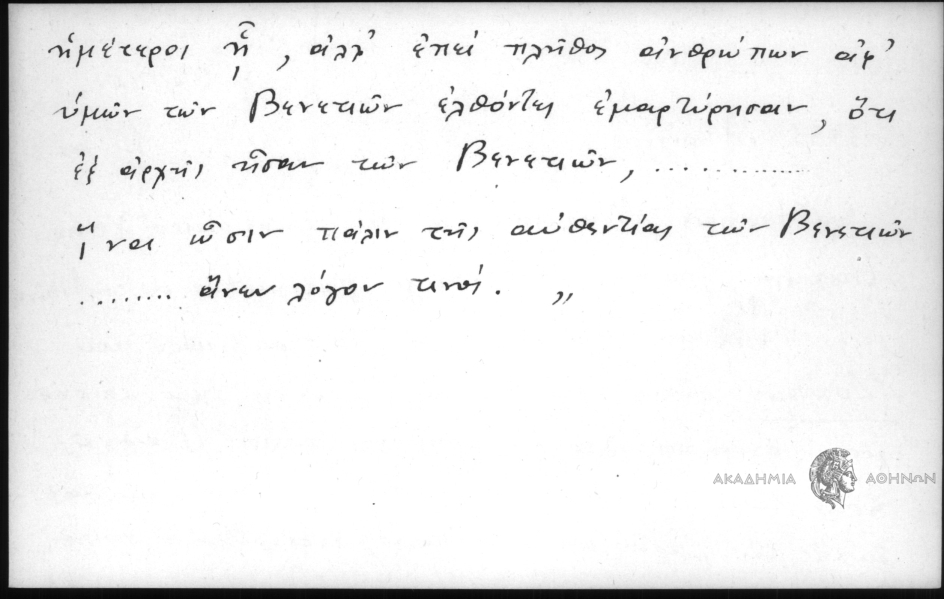 ἡμέτεροι ᾖ, ἀλλ' ἐπεὶ πλῆθος ἀνθρώπων ἀφ'
ὑμῶν τῶν Βενετιῶν ἐλθόντες ἐμαρτύρησαν, ὅτι
ἐξ ἀρχῆς ἦσαν τῶν Βενετιῶν, ..............
ἵνα ὦσιν πάλιν τῆς αὐθεντίας τῶν Βενετιῶν
......... ἄνευ λόγου τινός. „
ΑΚΑΔΗΜΙΑ ΑΘΗΝΩΝ